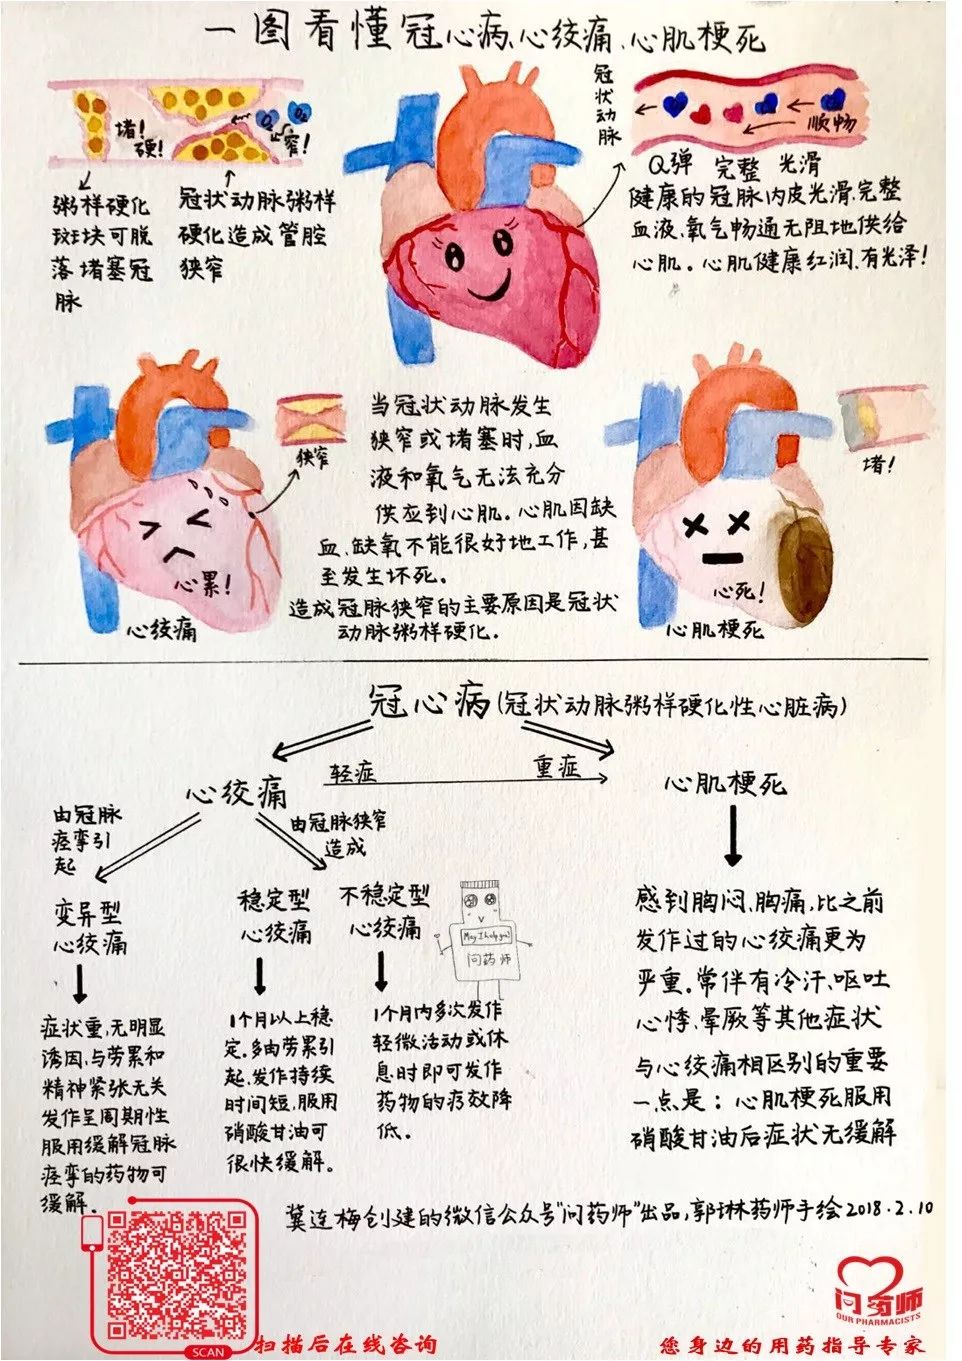 一图看懂冠心病、心绞痛、心肌梗死
堵!
硬!
O₂
O₂
窄!
粥样硬化
斑块可脱
落堵塞冠
脉
冠状动脉粥样
硬化造成管腔
狭窄
冠状动脉
顺畅
Q弹 完整 光滑
健康的冠脉内皮光滑、完整
血液、氧气畅通无阻地供给
心肌。心肌健康红润、有光泽!
狭窄
心累!
心绞痛
当冠状动脉发生
狭窄或堵塞时,血
液和氧气无法充分
供应到心肌。心肌因缺
血、缺氧不能很好地工作,甚
至发生坏死。
造成冠脉狭窄的主要原因是冠状
动脉粥样硬化.
堵!
心死!
心肌梗死
冠心病(冠状动脉粥样硬化性心脏病)
轻症
重症
心绞痛
心肌梗死
由冠脉
痉挛引
起
由冠脉狭窄
造成
变异型
心绞痛
稳定型
心绞痛
不稳定型
心绞痛
May I help you?
问药师
症状重,无明显
诱因,与劳累和
精神紧张无关
发作呈周期性
服用缓解冠脉
痉挛的药物可
缓解。
1个月以上稳
定.多由劳累引
起,发作持续
时间短,服用
硝酸甘油可
很快缓解。
1个月内多次发作
轻微活动或休
息时即可发作
药物的疗效降
低.
感到胸闷、胸痛,比之前
发作过的心绞痛更为
严重.常伴有冷汗、呕吐
心悸、晕厥等其他症状
与心绞痛相区别的重要
一点是:心肌梗死服用
硝酸甘油后症状无缓解
冀连梅创建的微信公众号"问药师"出品,郭琳药师手绘2018.2.10
SCAN
扫描后在线咨询
问药师
OUR PHARMACISTS
您身边的用药指导专家